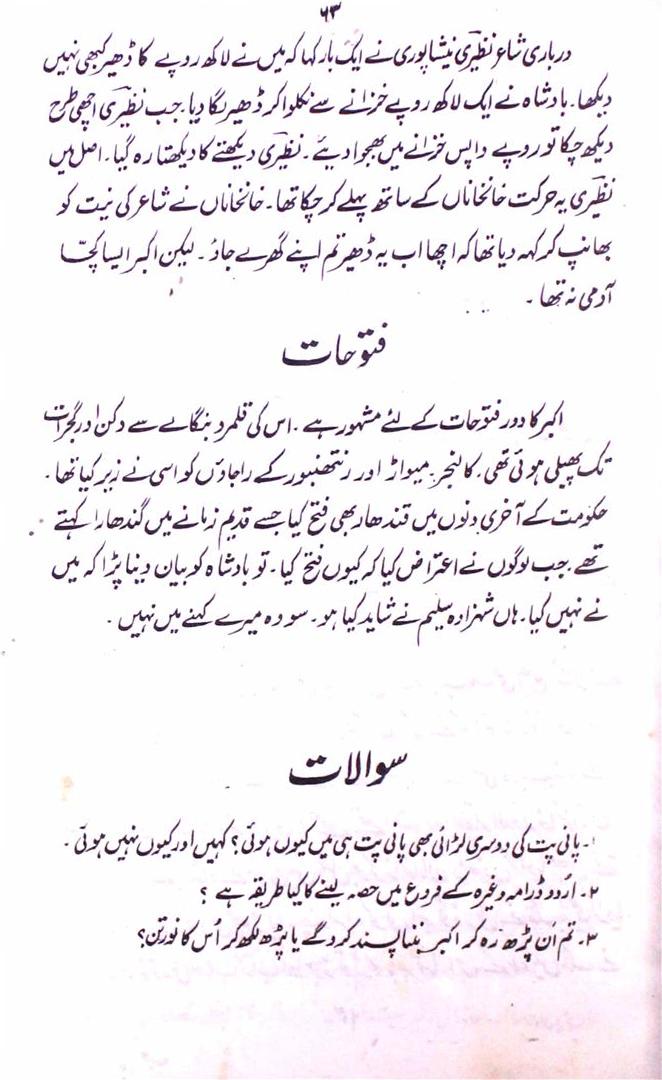 ۶۳
درباری شاعر نظیری نیشاپوری نے ایک بار کہا کہ میں نے لاکھ روپے کا ڈھیر کبھی نہیں
دیکھا۔ بادشاہ نے ایک لاکھ روپے خزانے سے نکلوا کر ڈھیر لگا دیا۔ جب نظیری اچھی طرح
دیکھ چکا تو روپے واپس خزانے میں بھجوا دیئے۔ نظیری دیکھتے کا دیکھتا رہ گیا۔ اصل میں
نظیری یہ حرکت خانخاناں کے ساتھ پہلے کر چکا تھا۔ خانخاناں نے شاعر کی نیت کو
بھانپ کر کہہ دیا تھا کہ اچھا اب یہ ڈھیر تم اپنے گھر لے جاؤ۔ لیکن اکبر ایسا کچّا
آدمی نہ تھا۔
فتوحات
اکبر کا دور فتوحات کے لئے مشہور ہے۔ اس کی قلمرو بنگالے سے دکن اور گجرات
تک پھیلی ہوئی تھی۔ کالنجر، میواڑ اور رنتھنبور کے راجاؤں کو اسی نے زیر کیا تھا۔
حکومت کے آخری دنوں میں قندھار بھی فتح کیا جسے قدیم زمانے میں گندھارا کہتے
تھے۔ جب لوگوں نے اعتراض کیا کہ کیوں فتح کیا۔ تو بادشاہ کو بیان دینا پڑا کہ میں
نے نہیں کیا۔ ہاں شہزادہ سلیم نے شاید کیا ہو۔ سو وہ میرے کہنے میں نہیں۔
سوالات
۱۔ پانی پت کی دوسری لڑائی بھی پانی پت ہی میں کیوں ہوئی؟ کہیں اور کیوں نہیں ہوئی۔
۲۔ اُردو ڈرامہ وغیرہ کے فروغ میں حصہ لینے کا کیا طریقہ ہے ؟
۳۔ تم اَن پڑھ رہ کر اکبر بننا پسند کرو گے یا پڑھ لکھ کر اُس کا نورتن؟